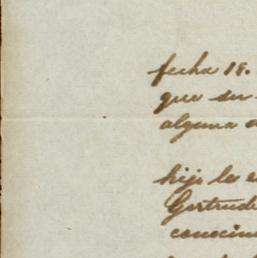 fecha 18.
que su
alguna
hijo la
Gertrud
conocim